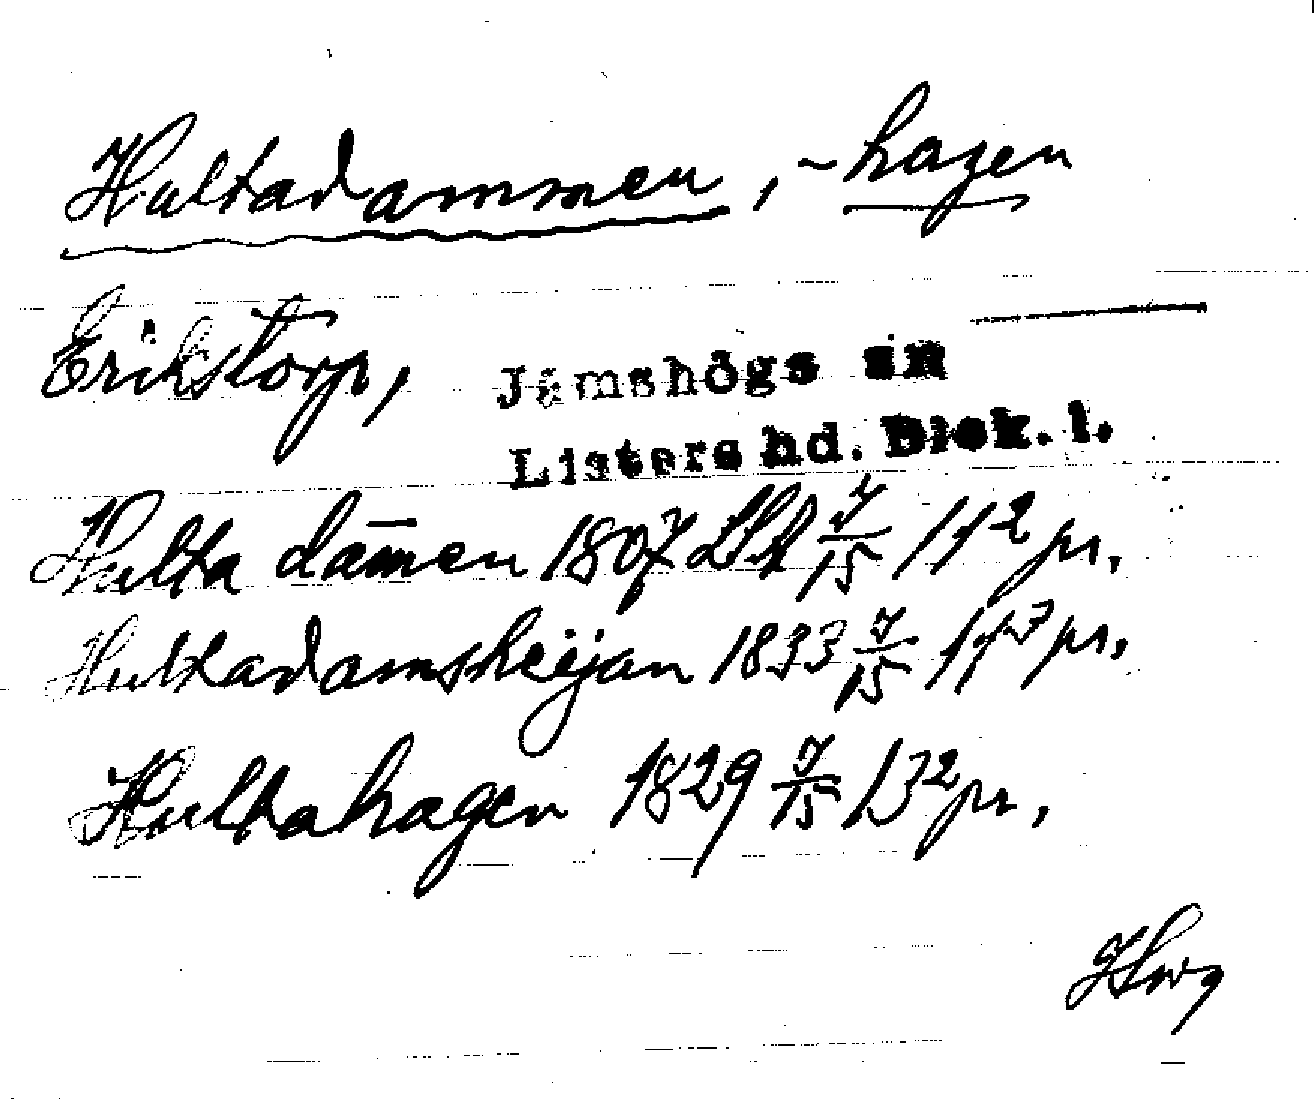 Hultadammen, -hagen
Erikstorp, Jämshögs sn
Listers hd. Blek. l.
Hulta dam̅en 1807 7/15 11² pr.
Hultadams 1833 7/15 11³ pr.
Hultahagen 1829 7/15 13² pr.